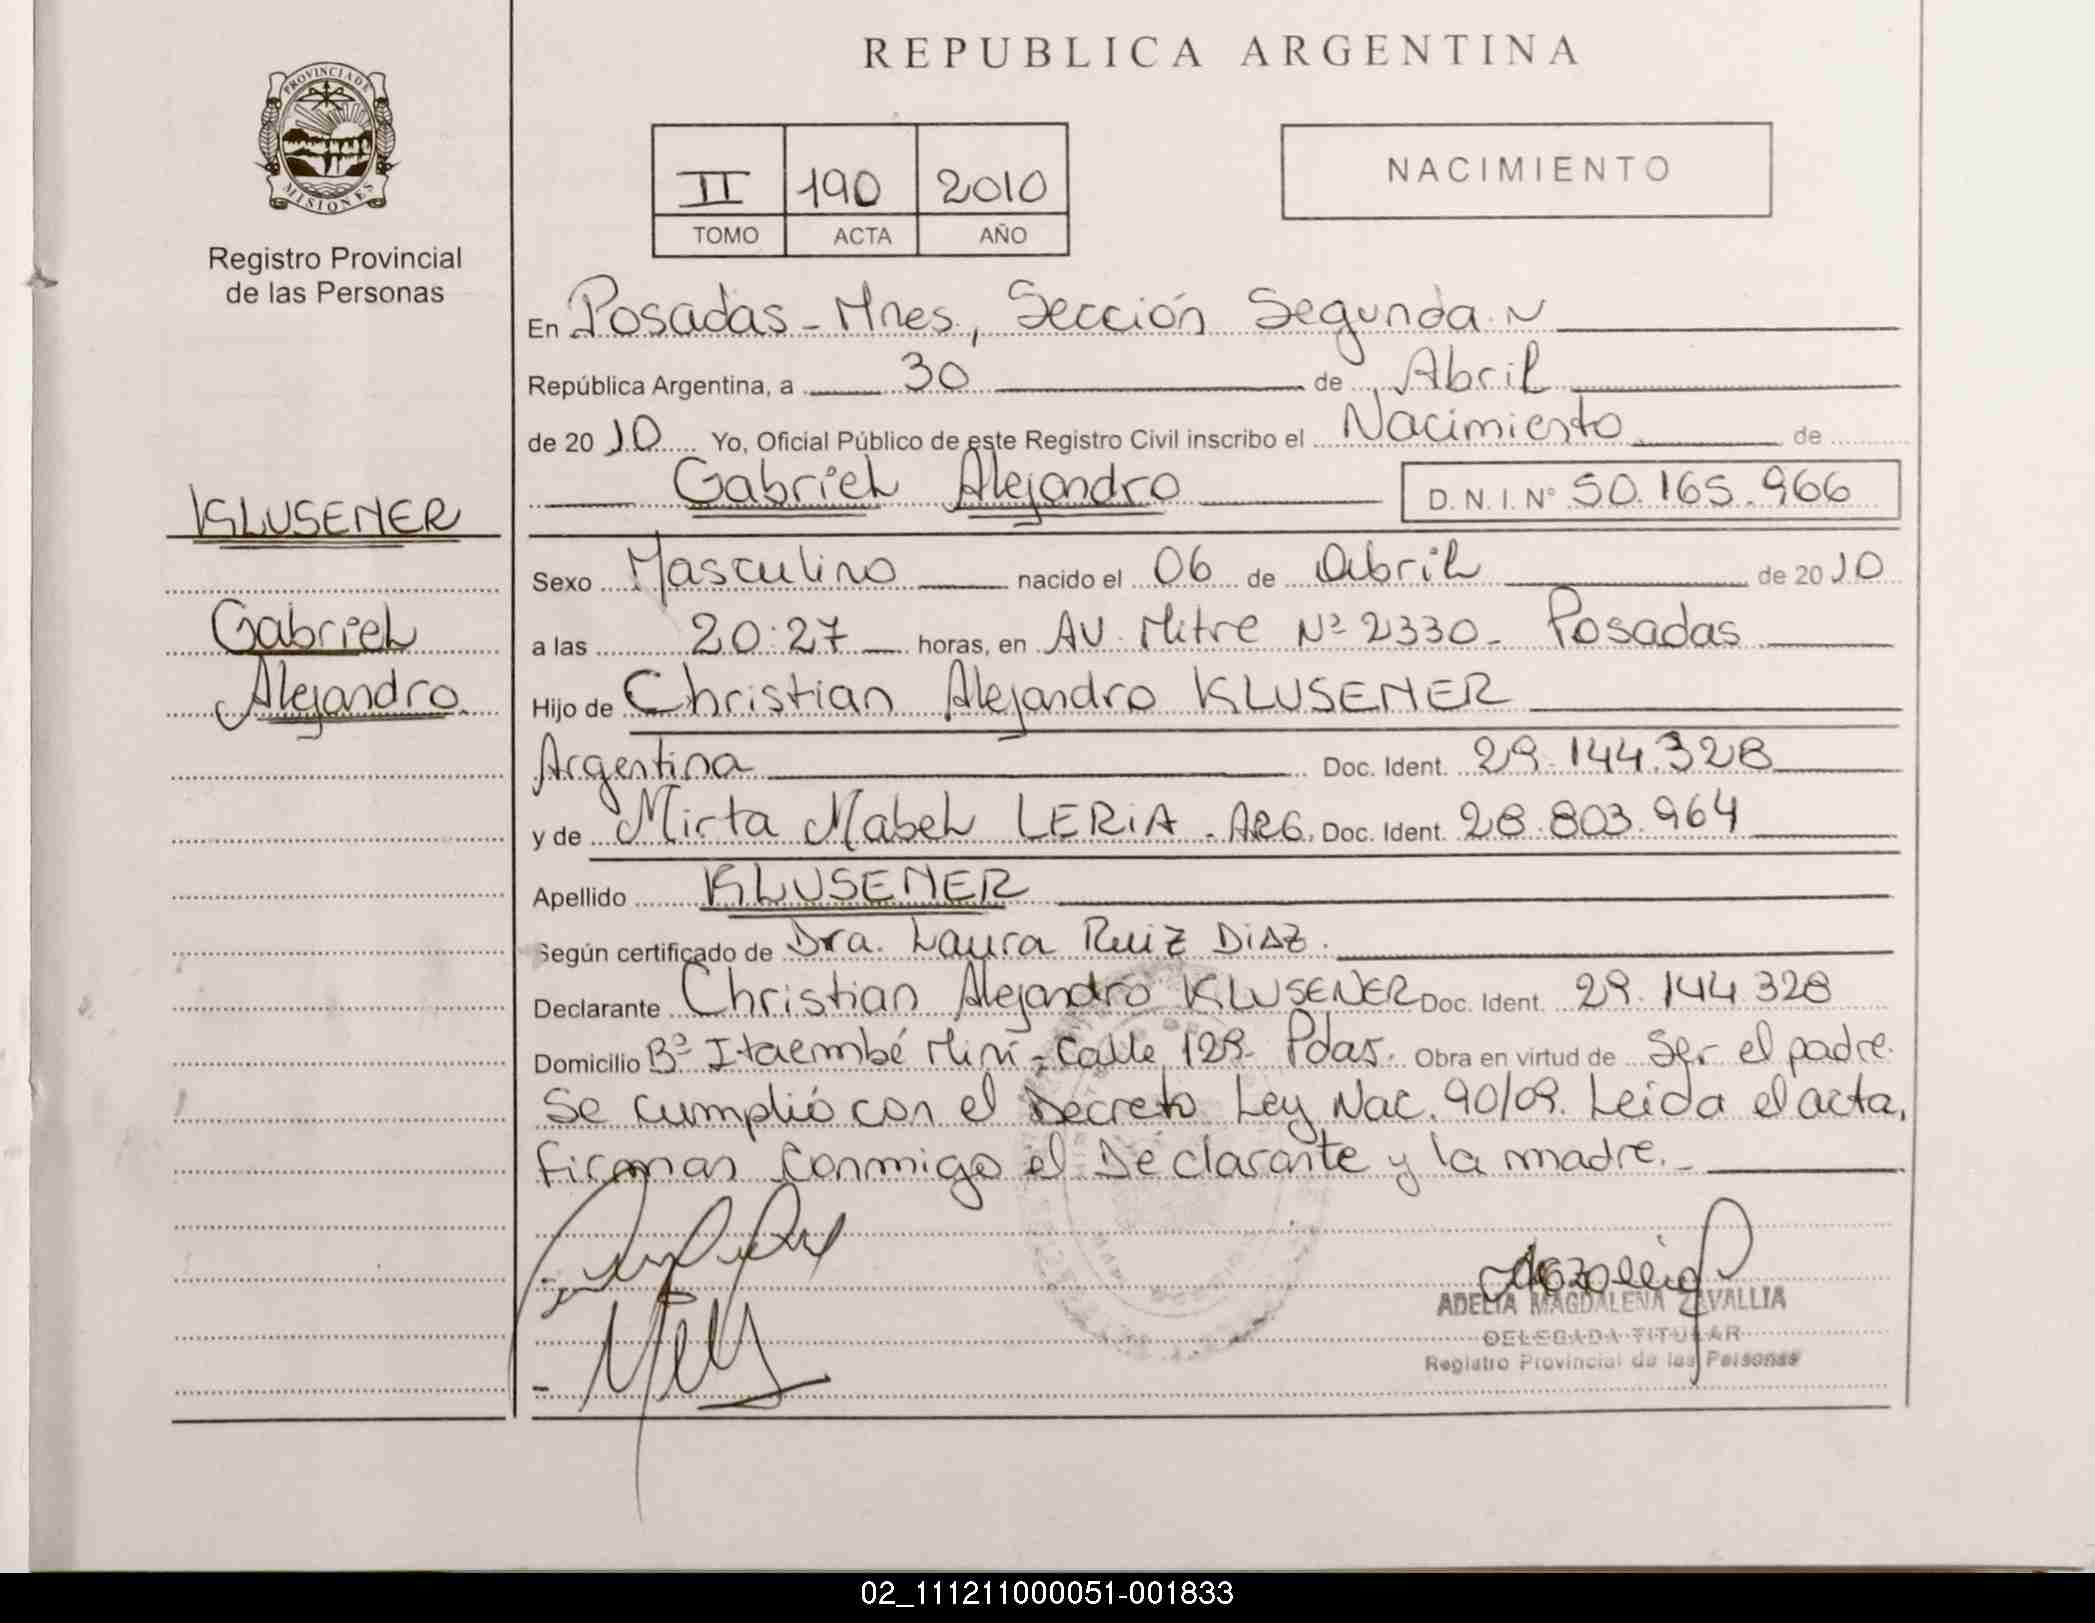 REPUBLICA ARGENTINA
PROVINCIA DE
MISIONES
Registro Provincial
de las Personas
II 190 2010
TOMO ACTA AÑO
NACIMIENTO
En Posadas - Mnes., Sección Segunda
República Argentina, a 30 de Abril
de 2010 Yo, Oficial Público de este Registro Civil inscribo el Nacimiento de
Gabriel Alejandro D. N. I. N° 50.165.966
KLUSENER
Gabriel
Alejandro.
Sexo Masculino nacido el 06 de Abril de 2010
a las 20:27 horas, en AV. Mitre Nº 2330 - Posadas
Hijo de Christian Alejandro KLUSENER
Argentina Doc. Ident. 29.144.328
y de Mirta Mabel LERIA - ARG. Doc. Ident. 28.803.964
Apellido KLUSENER
Según certificado de Dra. Laura Ruiz DIAZ.
Declarante Christian Alejandro KLUSENER Doc. Ident. 29.144.328
Domicilio Bº Itaembé Miní - Calle 129 - Pdas. Obra en virtud de Ser el padre.
Se cumplió con el Decreto Ley Nac. 90/09. Leida el acta,
firman conmigo el Declarante y la madre. -
ADELIA MAGDALENA ZAVALLIA
DELEGADA TITULAR
Registro Provincial de las Personas
02_111211000051-001833